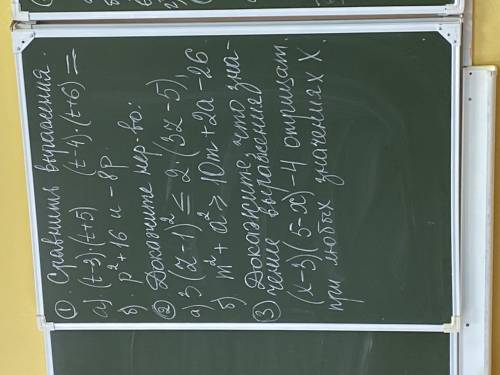 ① Сравнить выражения.
а) (t-3)·(t+5) (t-4)·(t+6) =
б. p²+16 и -8p
② Докажите нер-во:
а) 3(z-1)² ≤ 2·(3z-5),
б) m²+a² ≥ 10m+2a-26
③ Докажите, что зна-
чение выражения
(x-3)(5-x)-4 отрицат.
при любых значениях X.